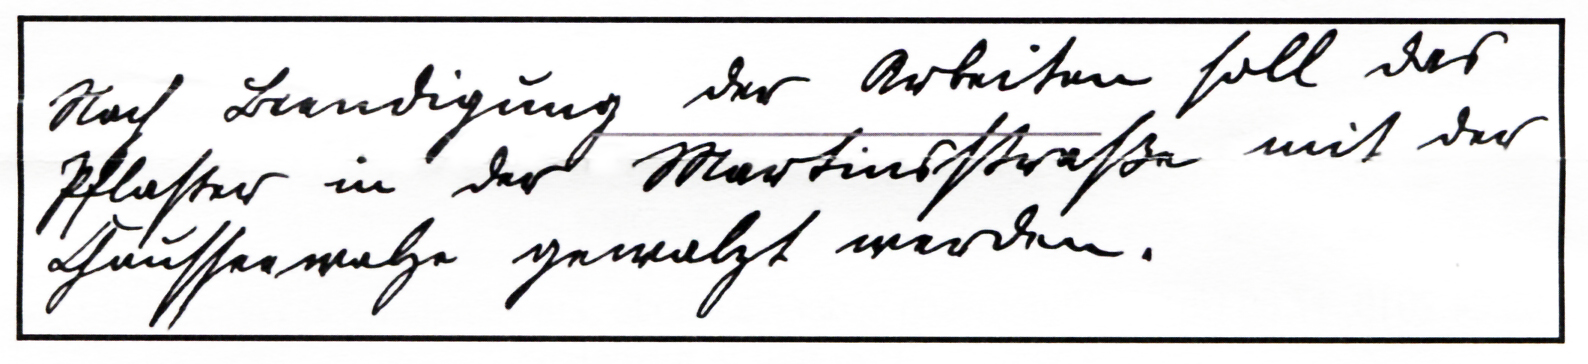 Nach Beendigung der Arbeiten soll das
Pflaster in der Martinsstraße mit der
Chausseewalze gewalzt werden.